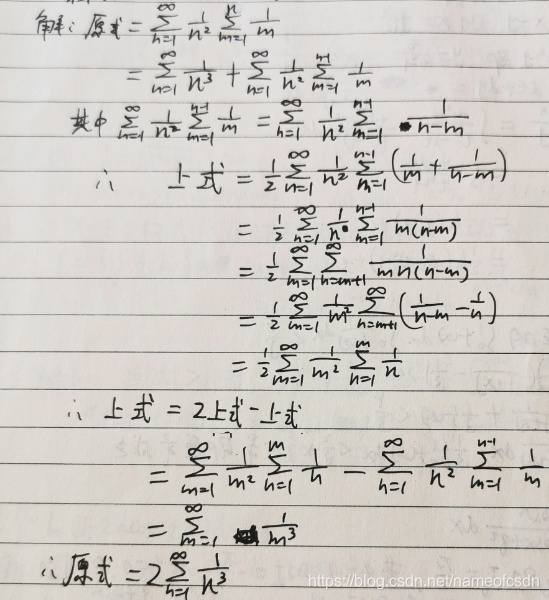 解：原式 = ∑_{n=1}^{∞} 1/n² ∑_{m=1}^{n} 1/m
= ∑_{n=1}^{∞} 1/n³ + ∑_{n=1}^{∞} 1/n² ∑_{m=1}^{n-1} 1/m
其中 ∑_{n=1}^{∞} 1/n² ∑_{m=1}^{n-1} 1/m = ∑_{n=1}^{∞} 1/n² ∑_{m=1}^{n-1} 1/(n-m)
∴ 上式 = 1/2 ∑_{n=1}^{∞} 1/n² ∑_{m=1}^{n-1} (1/m + 1/(n-m))
= 1/2 ∑_{n=1}^{∞} 1/n ∑_{m=1}^{n-1} 1/(m(n-m))
= 1/2 ∑_{m=1}^{∞} ∑_{n=m+1}^{∞} 1/(mn(n-m))
= 1/2 ∑_{m=1}^{∞} 1/m² ∑_{n=m+1}^{∞} (1/(n-m) - 1/n)
= 1/2 ∑_{m=1}^{∞} 1/m² ∑_{n=1}^{m} 1/n
∴ 上式 = 2上式 - 上式
= ∑_{m=1}^{∞} 1/m² ∑_{n=1}^{m} 1/n - ∑_{n=1}^{∞} 1/n² ∑_{m=1}^{n-1} 1/m
= ∑_{m=1}^{∞} 1/m³
∴ 原式 = 2 ∑_{n=1}^{∞} 1/n³
https://blog.csdn.net/nameofcsdn